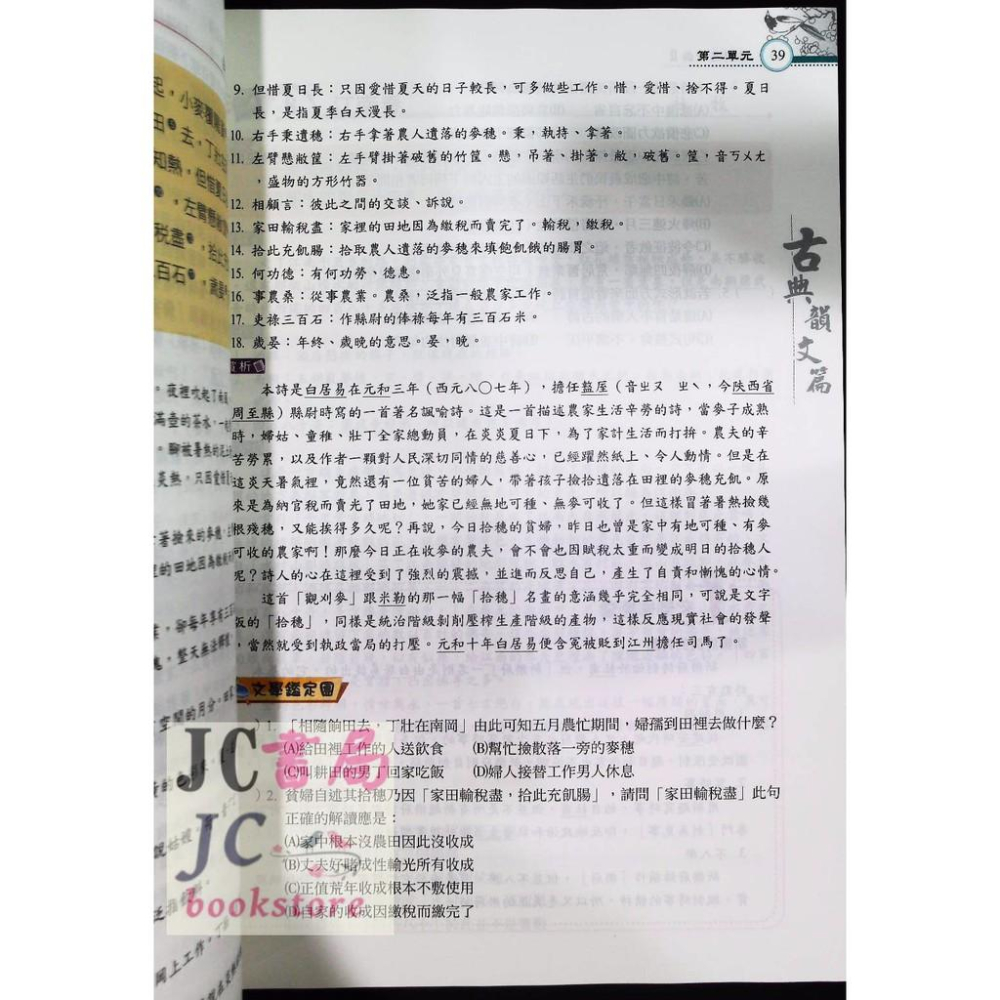 第二單元 39
9. 但惜夏日長：只因愛惜夏天的日子較長，可多做些工作。惜，愛惜、捨不得。夏日
長，是指夏季白天漫長。
10. 右手秉遺穗：右手拿著農人遺落的麥穗。秉，執持、拿著。
11. 左臂懸敝筐：左手臂掛著破舊的竹筐。懸，吊著、掛著。敝，破舊。筐，音ㄎㄨㄤ
，盛物的方形竹器。
12. 相顧言：彼此之間的交談、訴說。
13. 家田輸稅盡：家裡的田地因為繳稅而賣完了。輸稅，繳稅。
14. 拾此充飢腸：拾取農人遺落的麥穗來填飽飢餓的腸胃。
15. 何功德：有何功勞、德惠。
16. 事農桑：從事農業。農桑，泛指一般農家工作。
17. 吏祿三百石：作縣尉的俸祿每年有三百石米。
18. 歲晏：年終、歲晚的意思。晏，晚。
賞析
本詩是白居易在元和三年（西元八〇七年），擔任盩厔（音ㄓㄡ ㄓˋ，今陝西省
周至縣）縣尉時寫的一首著名諷喻詩。這是一首描述農家生活辛勞的詩，當麥子成熟
時，婦姑、童稚、壯丁全家總動員，在炎炎夏日下，為了家計生活而打拚。農夫的辛
苦勞累，以及作者一顆對人民深切同情的慈善心，已經躍然紙上、令人動情。但是在
這炎天暑氣裡，竟然還有一位貧苦的婦人，帶著孩子撿拾遺落在田裡的麥穗充飢。原
來是為納官稅而賣光了田地，她家已經無地可種、無麥可收了。但這樣冒著暑熱撿幾
根殘穗，又能挨得多久呢？再說，今日拾穗的貧婦，昨日也曾是家中有地可種、有麥
可收的農家啊！那麼今日正在收麥的農夫，會不會也因賦稅太重而變成明日的拾穗人
呢？詩人的心在這裡受到了強烈的震撼，並進而反思自己，產生了自責和慚愧的心情。
這首「觀刈麥」跟米勒的那一幅「拾穗」名畫的意涵幾乎完全相同，可說是文字
版的「拾穗」，同樣是統治階級剝削壓榨生產階級的產物，這樣反應現實社會的發聲
，當然就受到執政當局的打壓。元和十年白居易便含冤被貶到江州擔任司馬了。
文學鑑定團
）1. 「相隨餉田去，丁壯在南岡」由此可知五月農忙期間，婦孺到田裡去做什麼？
(A)給田裡工作的人送飲食 (B)幫忙撿散落一旁的麥穗
(C)叫耕田的男丁回家吃飯 (D)婦人接替工作男人休息
）2. 貧婦自述其拾穗乃因「家田輸稅盡，拾此充飢腸」，請問「家田輸稅盡」此句
正確的解讀應是：
(A)家中根本沒農田因此沒收成
(B)丈夫好賭成性輸光所有收成
(C)正值荒年收成根本不敷使用
(D)自家的收成因繳稅而繳完了
古典韻文篇
JC書局
JC
bookstore